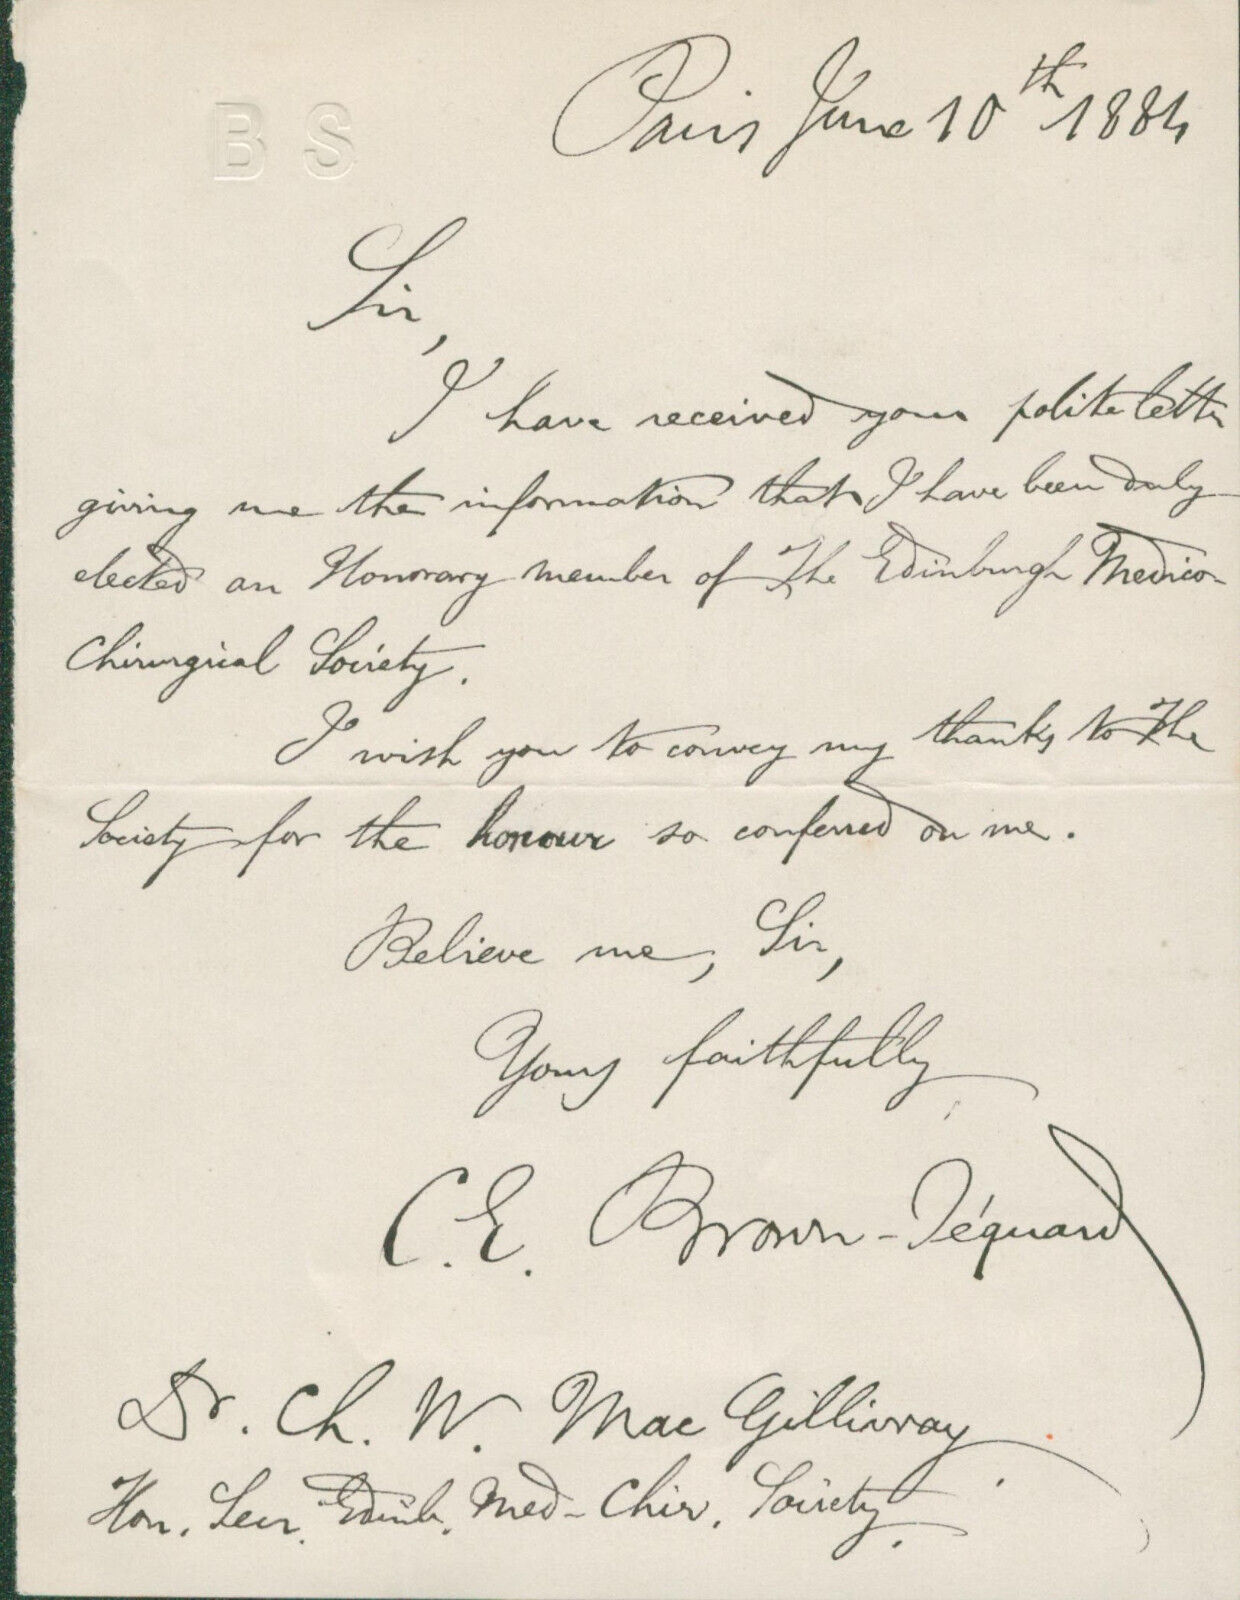 B S
Paris June 10th 1884
Sir,
I have received your polite letter
giving me the information that I have been duly
elected an Honorary member of The Edinburgh Medico-
Chirurgical Society.
I wish you to convey my thanks to The
Society for the honour so conferred on me.
Believe me, Sir,
Yours faithfully
C. E. Brown-Séquard
Dr. Ch. W. Mac Gillivray
Hon. Secr. Edinb. Med-Chir. Society.